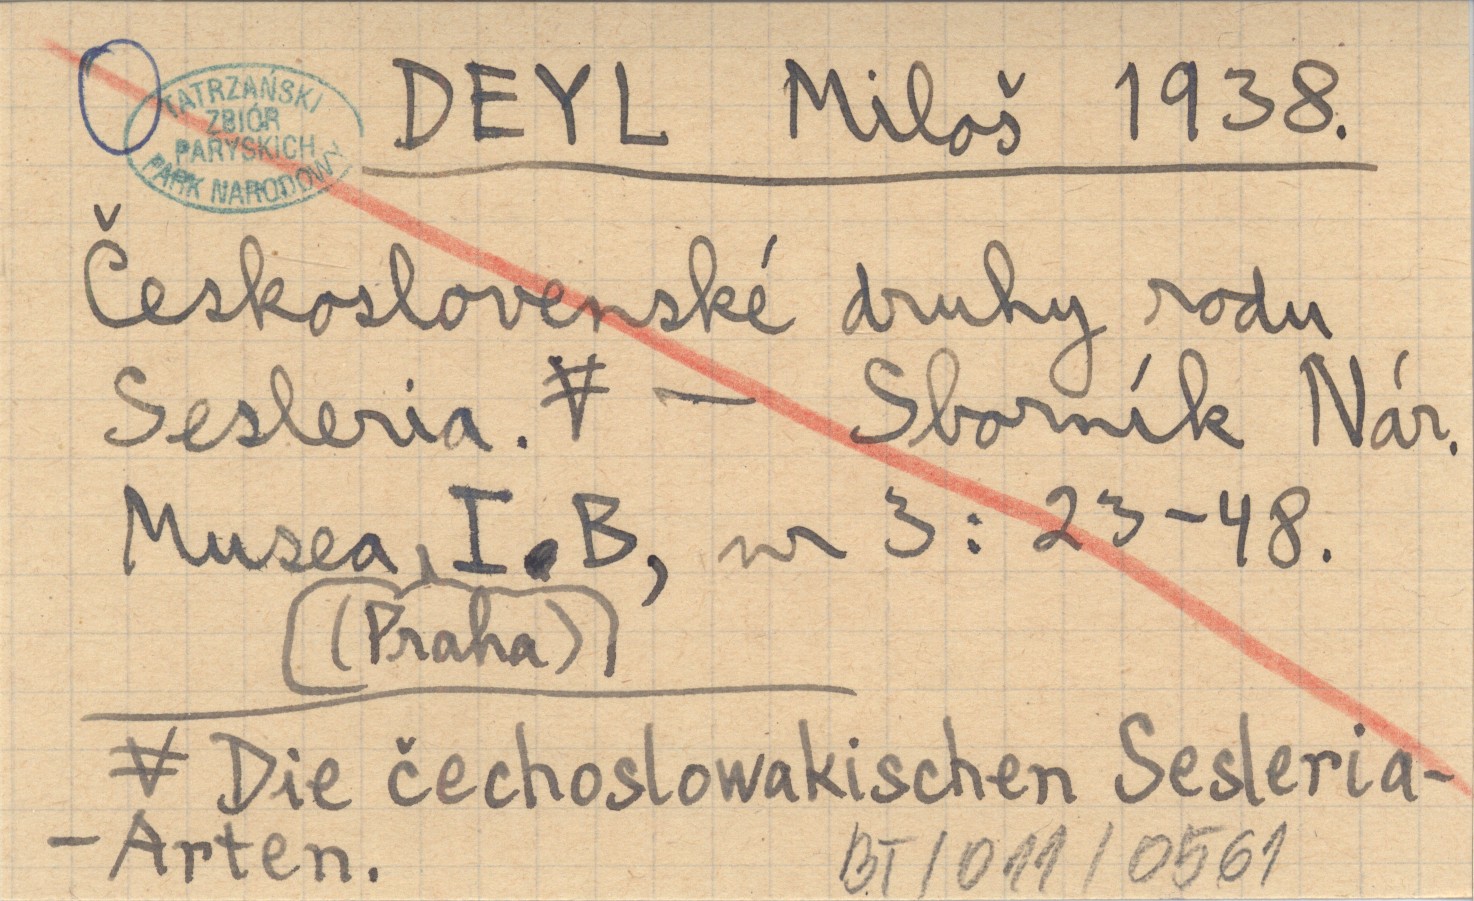 TATRZAŃSKI
ZBIÓR
PARYSKICH
PARK NARODOWY
DEYL Miloš 1938.
Československé druhy rodu
Sesleria. — Sborník Nár.
Musea, I. B, nr 3: 23-48.
(Praha)
Die čechoslowakischen Sesleria-
-Arten.
BT/011/0561